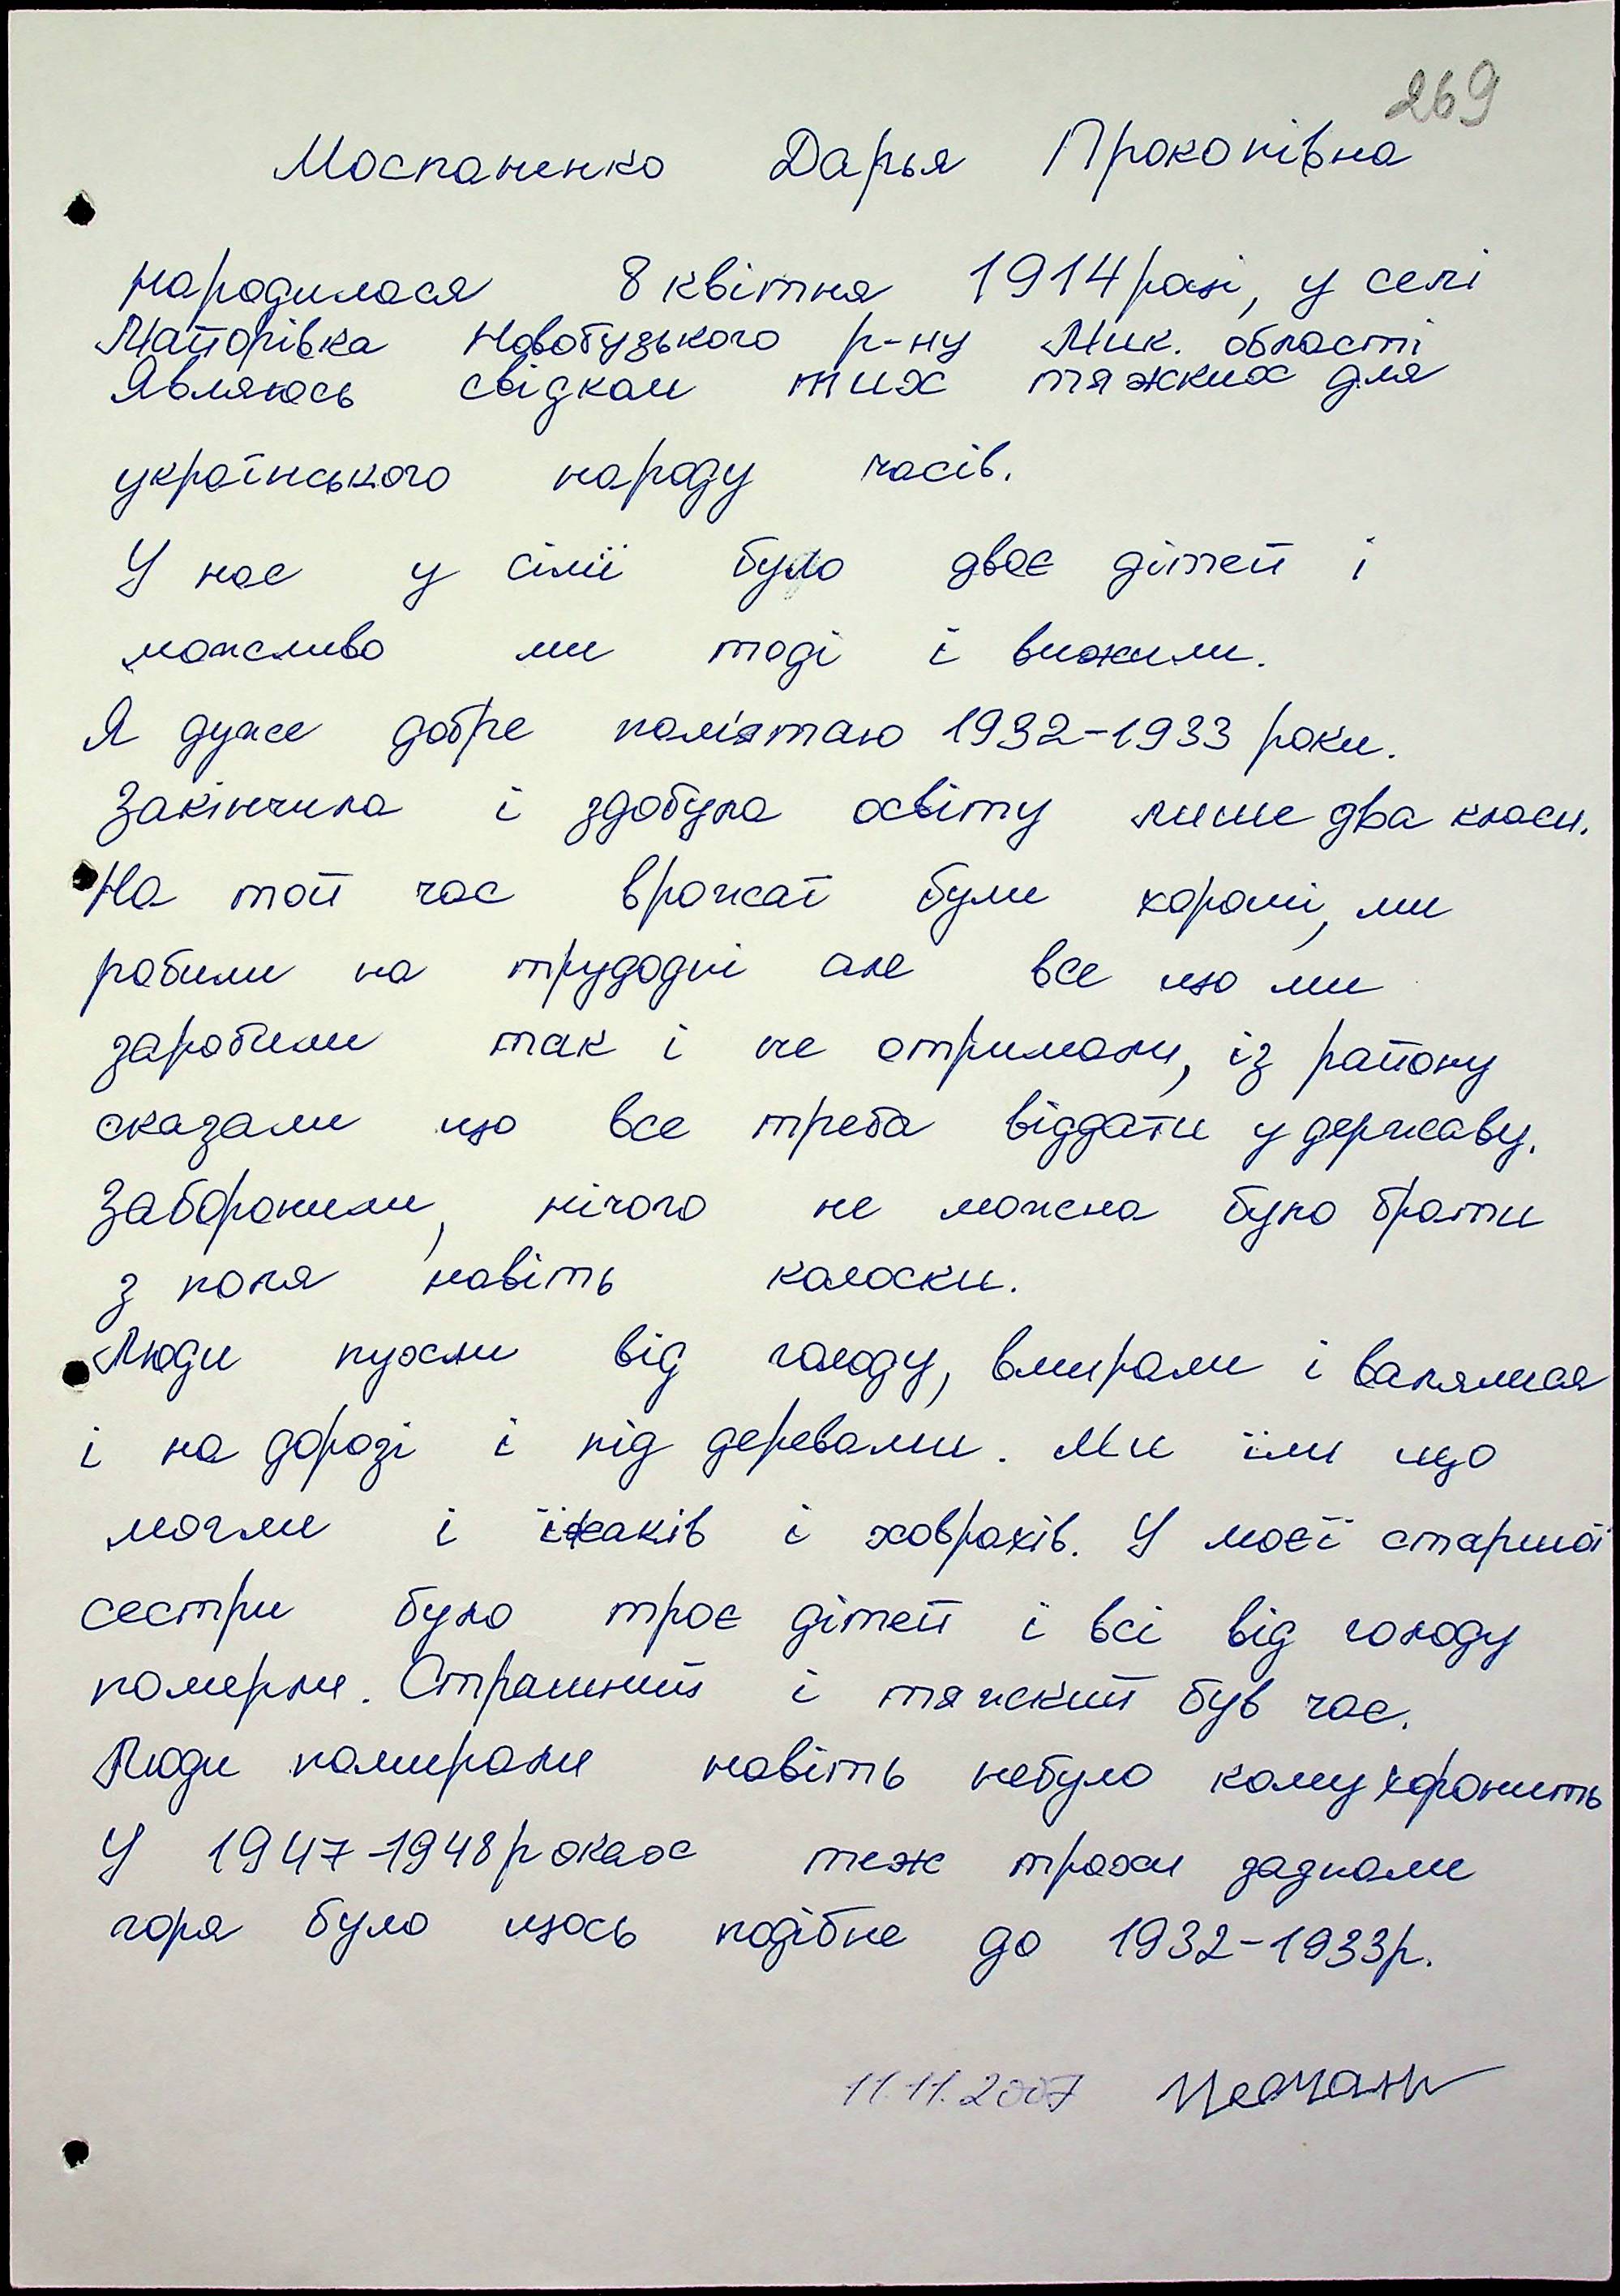 269
Моспаненко Дарья Прокопівна
народилася 8 квітня 1914 році, у селі
Майорівка Новобузького р-ну Мик. області
Являюсь свідком тих тяжких для
українського народу часів.
У нас у сімї було двоє дітей і
можливо ми тоді і вижили.
Я дуже добре пам'ятаю 1932-1933 роки.
Закінчила і здобула освіту лише два класи.
На той час врожаї були хороші, ми
робили на трудодні але все що ми
заробили так і не отримали, із району
сказали що все треба віддати у державу.
Заборонили, нічого не можна було брати
з поля навіть колоски.
Люди пухли від голоду, вмирали і валялися
і на дорозі і під деревами. Ми їли що
могли і їжаків і ховрахів. У моєї старшої
сестри було троє дітей і всі від голоду
померли. Страшний і тяжкий був час.
Люди помирали навіть небуло кому хоронить
У 1947-1948 роках теж трохи зазнали
горя було щось подібне до 1932-1933р.
11.11.2007